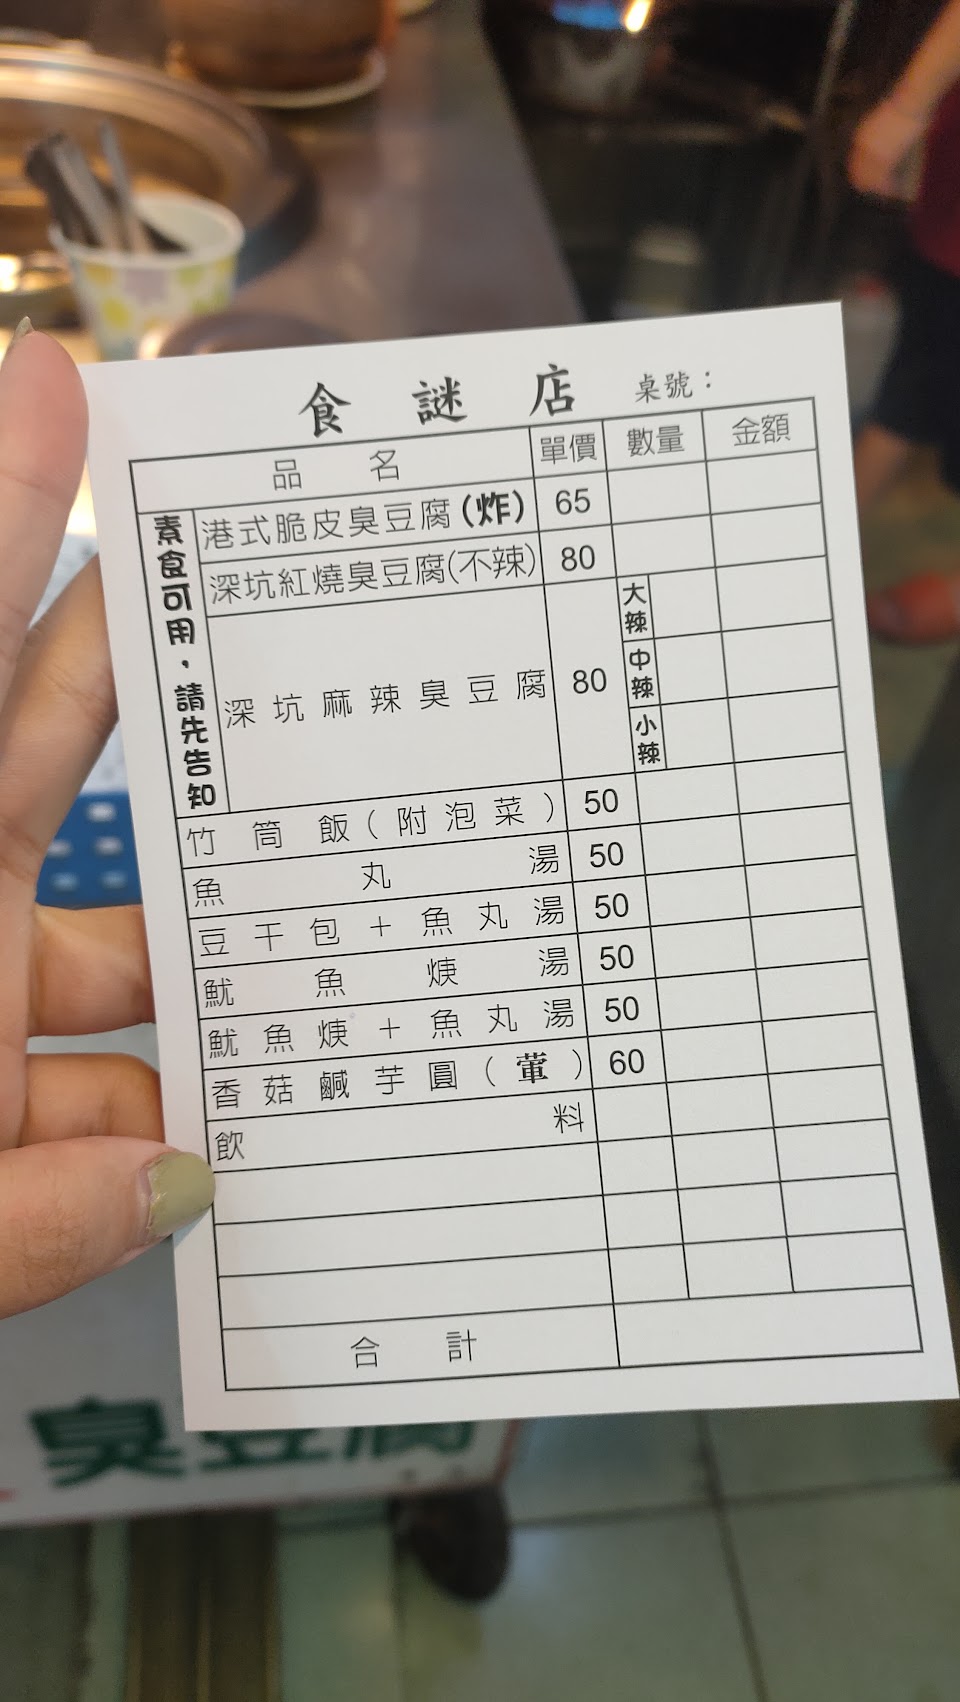 食謎店 桌號：
品名 單價 數量 金額
素食可用，請先告知
港式脆皮臭豆腐(炸) 65
深坑紅燒臭豆腐(不辣) 80
深坑麻辣臭豆腐 80 大辣 中辣 小辣
竹筒飯(附泡菜) 50
魚丸湯 50
豆干包+魚丸湯 50
魷魚焿湯 50
魷魚焿+魚丸湯 50
香菇鹹芋圓(葷) 60
飲料
合計
臭豆腐